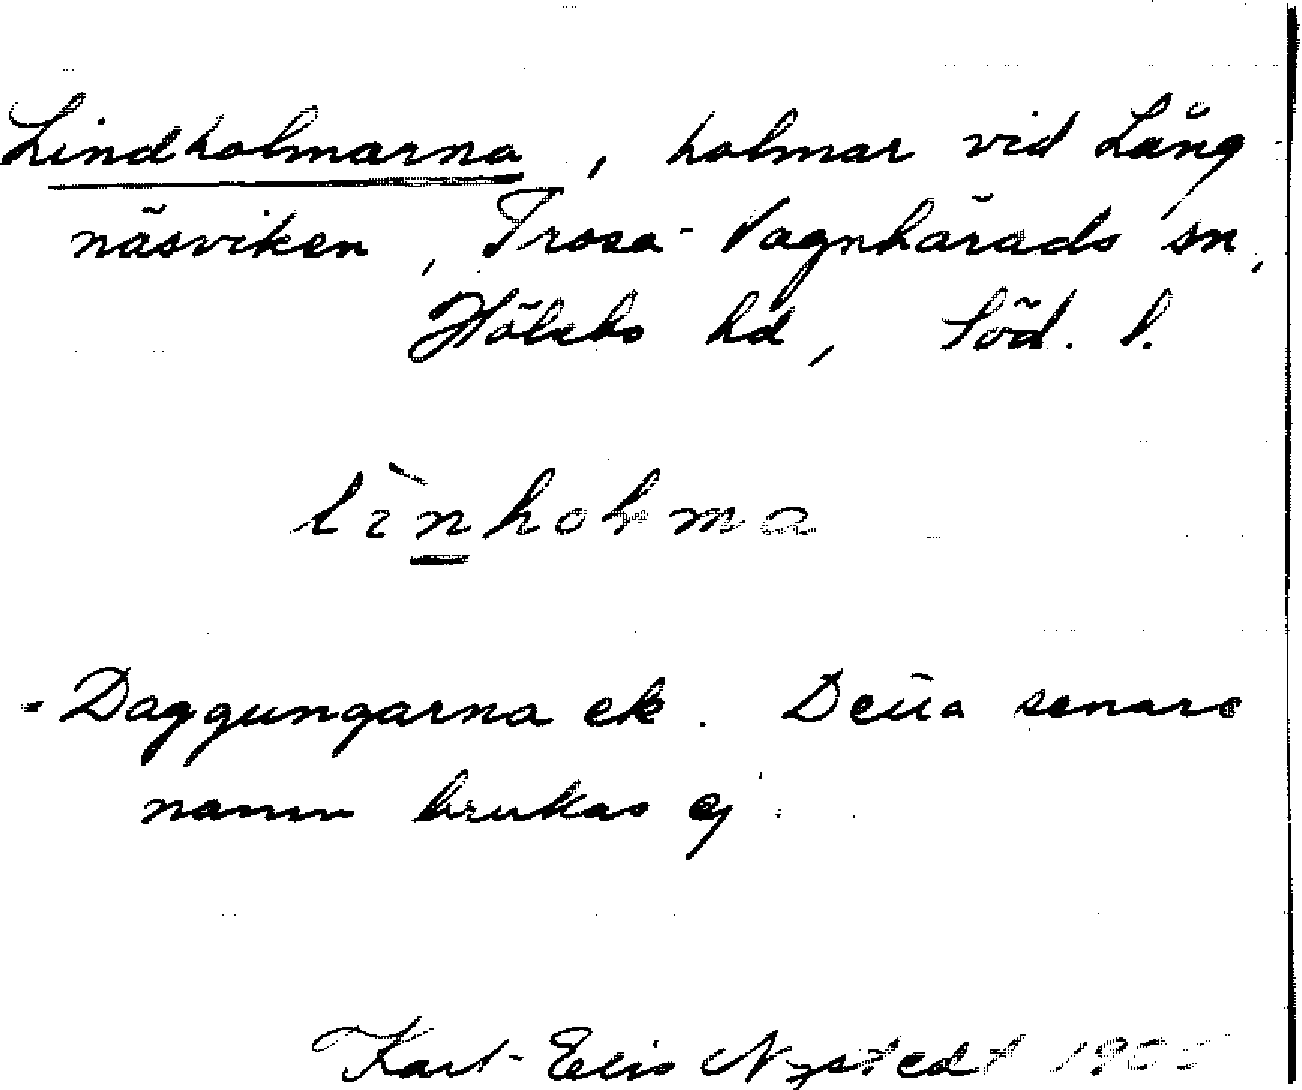 Lindholmarna, holmar vid Lång-
näsviken, Trosa-Vagnhärads sn,
Hölebo hd, Söd. l.
lìnhołma
= Daggungarna ek. Detta senare
namn brukas ej.
Karl-Elis Nystedt